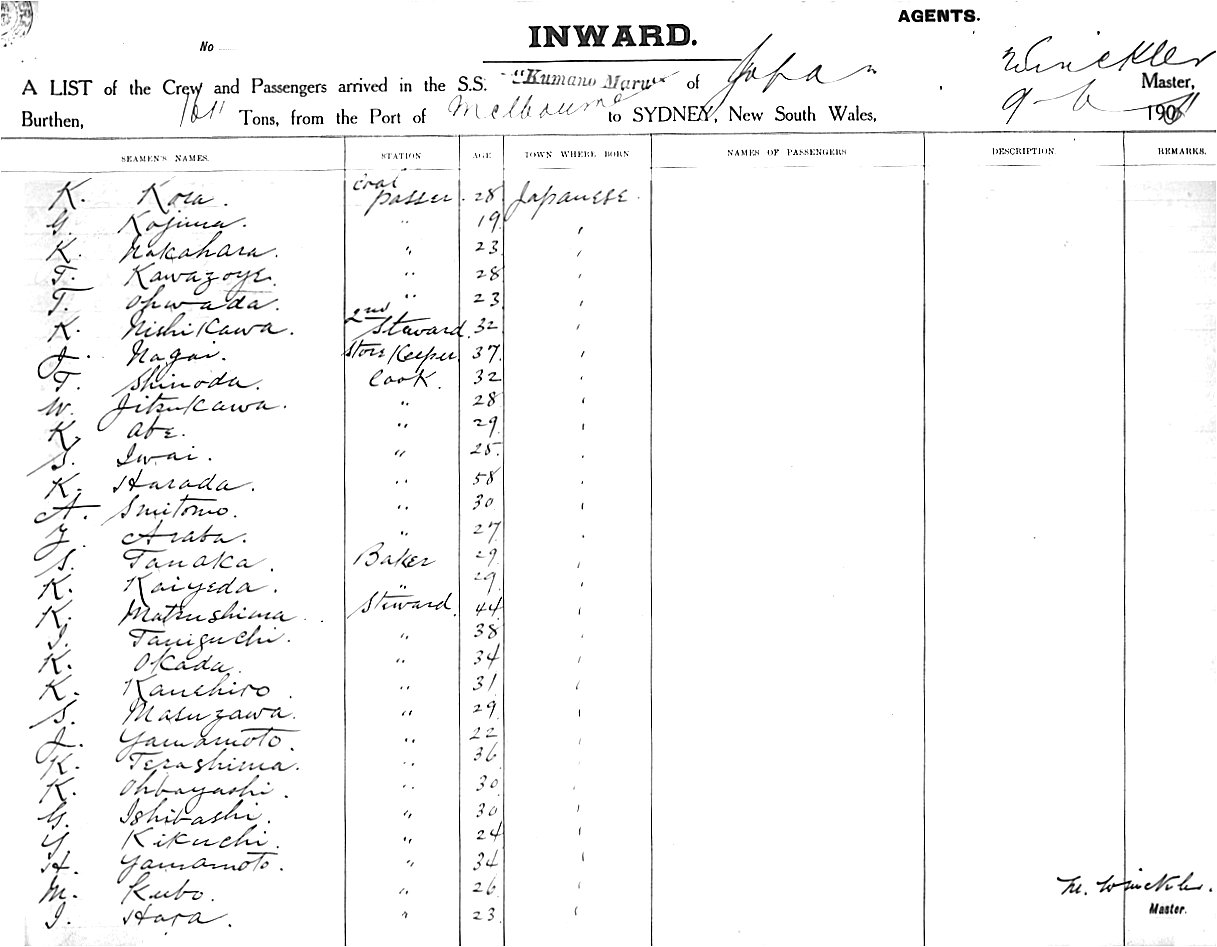 AGENTS.
No
INWARD.
A LIST of the Crew and Passengers arrived in the S.S. "Kumano Maru" of Japan Winckler Master,
Burthen, Tons, from the Port of Melbourne to SYDNEY, New South Wales, 9-6 190
SEAMEN'S NAMES. STATION AGE TOWN WHERE BORN NAMES OF PASSENGERS DESCRIPTION REMARKS.
K. Kosa. Coal passer. 28 Japanese.
G. Kojima. " 19 "
K. Nakahara. " 23 "
T. Kawazoye. " 28 "
T. Ohwada. " 23 "
K. Nishikawa. 2nd Steward. 32 "
J. Nagai. Store Keeper. 37 "
T. Shinoda. Cook. 32 "
W. Jitsukawa. " 28 "
K. Abe. " 29 "
S. Iwai. " 25 "
K. Harada. " 58 "
A. Smitomo. " 30 "
Araba. " 27 "
S. Tanaka. Baker 29 "
K. Kaiyeda. " 29 "
K. Matsushima. Steward. 44 "
I. Taniguchi. " 38 "
K. Okada. " 34 "
K. Kanehiro. " 31 "
S. Masuzawa. " 29 "
J. Yamamoto. " 22 "
K. Terashima. " 36 "
K. Ohbayashi. " 30 "
G. Ishibashi. " 30 "
Y. Kikuchi. " 24 "
H. Yamamoto. " 34 "
M. Kubo. " 26 "
I. Hara. " 23 "
M. Winckler.
Master.